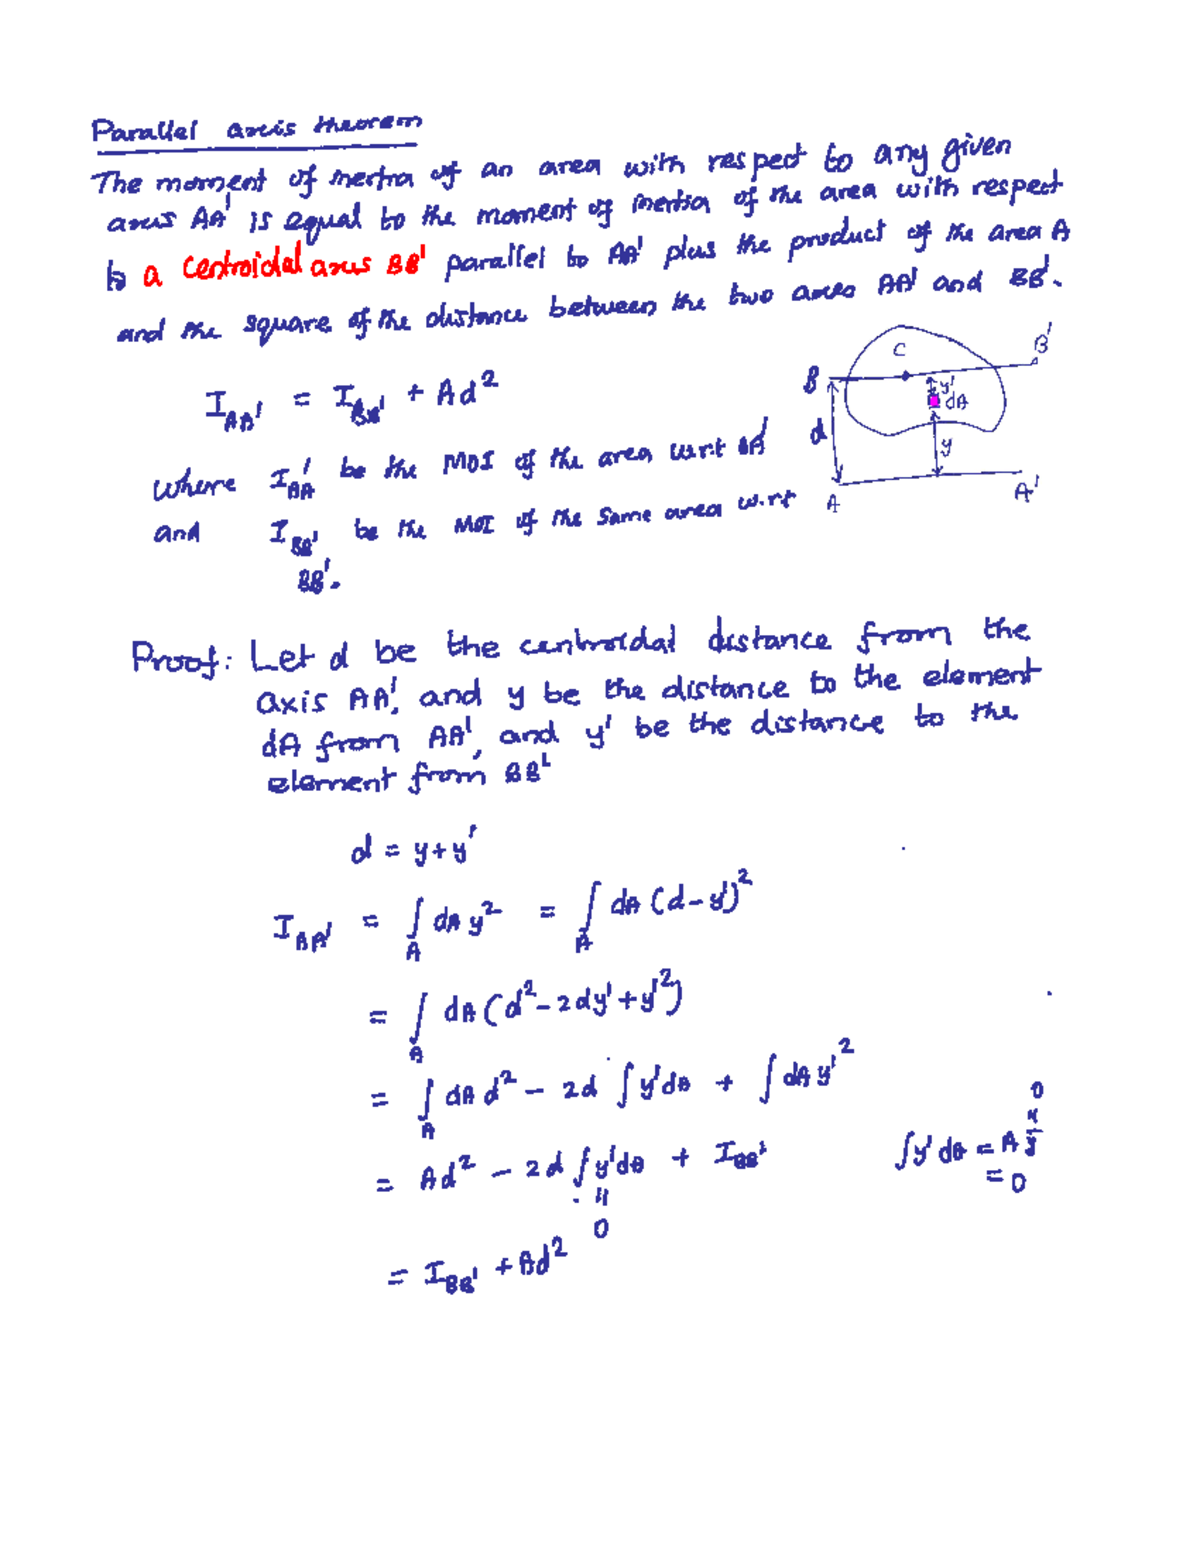 Parallel axis theorem
The moment of inertia of an area with respect to any given
axis AA' is equal to the moment of inertia of the area with respect
to a centroidal axis BB' parallel to AA' plus the product of the area A
and the square of the distance between the two axes AA' and BB'.
I_AA' = I_BB' + Ad²
where I_AA' be the MOI of the area w.r.t AA'
and I_BB' be the MOI of the same area w.r.t
BB'.
B C B'
y' dA
d y
A A'
Proof: Let d be the centroidal distance from the
axis AA', and y be the distance to the element
dA from AA', and y' be the distance to the
element from BB'
d = y + y'
I_AA' = ∫_A dA y² = ∫_A dA (d - y')²
= ∫_A dA (d² - 2dy' + y'²)
= ∫_A dA d² - 2d ∫y'dA + ∫dA y'²
= Ad² - 2d ∫y'dA + I_BB'
"
0
∫y' dA = A ȳ 0
= 0
= I_BB' + Ad²